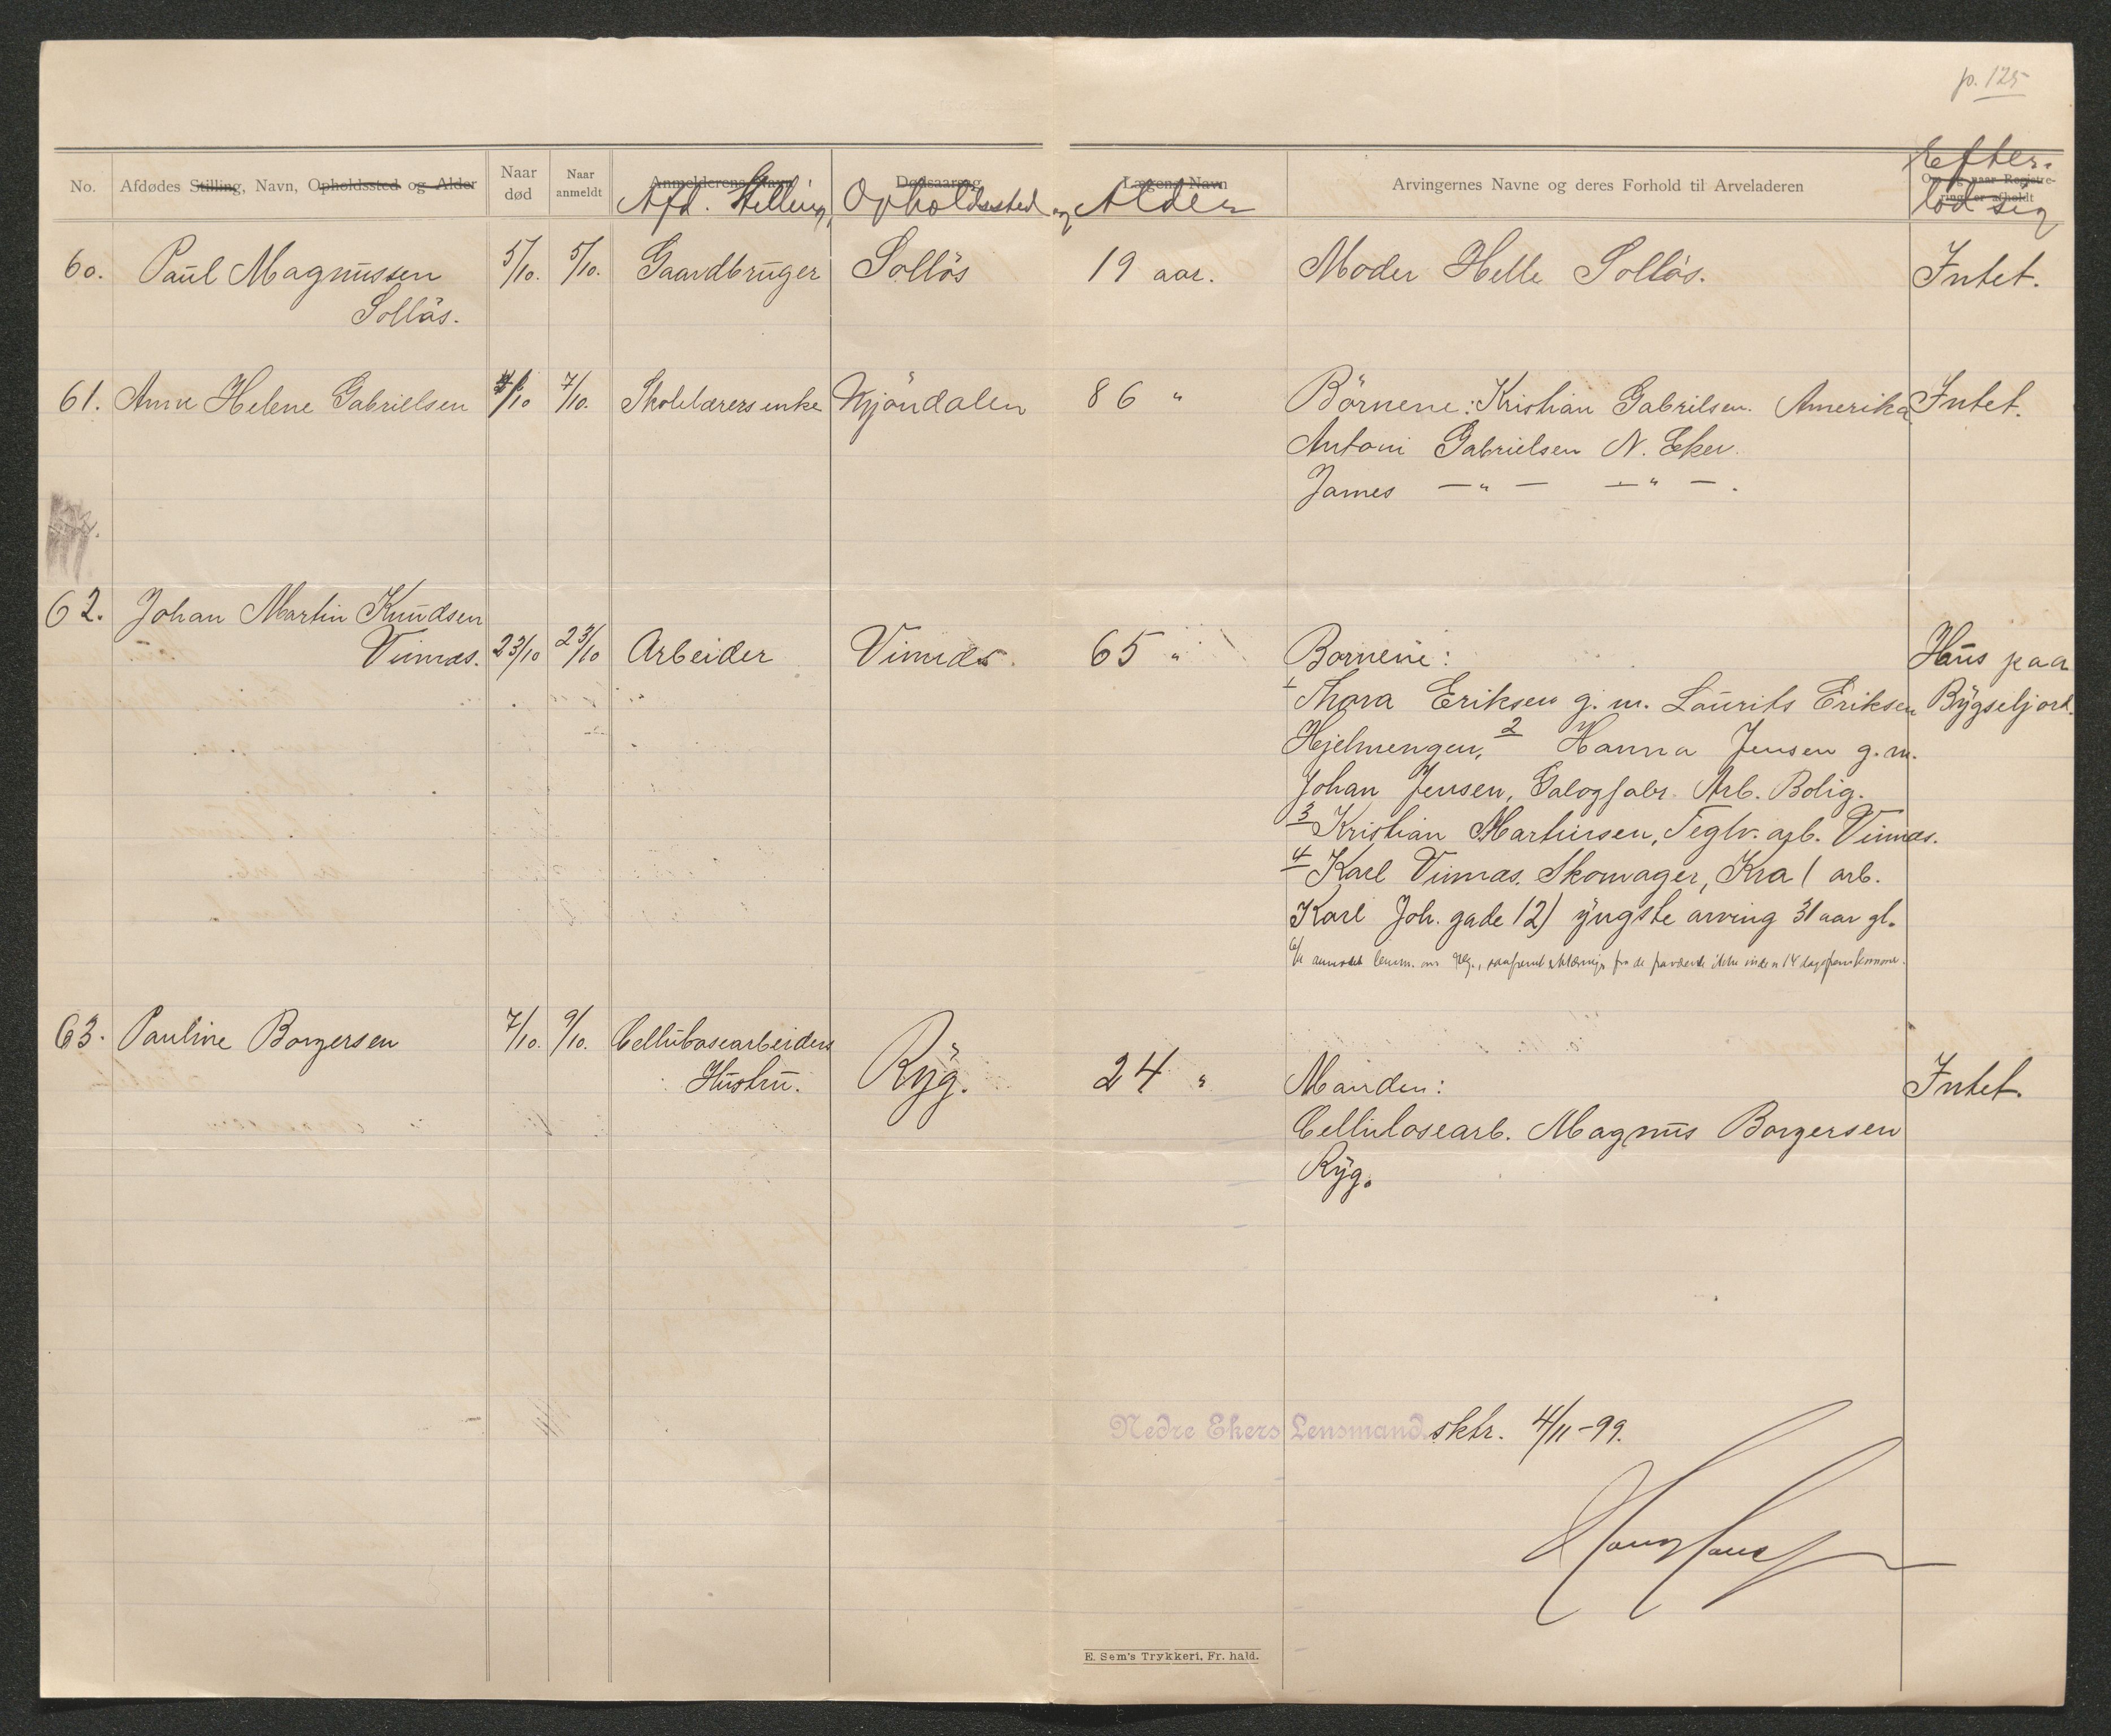 p. 125
No. Afdødes Stilling, Navn, Opholdssted og Alder Naar død Naar anmeldt Anmelderens Navn Dødsaarsag Lægens Navn Arvingernes Navne og deres Forhold til Arveladeren Om og naar Registrering er afholdt
Afd. Stilling, Opholdssted og Alder Efterlod sig
60. Paul Magnussen 5/10. 5/10. Gaardbruger Sollös 19 aar. Moder Helle Sollös. Intet.
Sollös.
61. Anne Helene Gabrielsen 4/10 7/10. Skolelærers enke Kjöndalen 86 " Börnene: Kristian Gabrilsen. Amerika Intet.
Antoni Gabrielsen N. Eker.
James —"— —"—.
62. Johan Martin Knudsen
Vinnæs. 23/10 23/10 Arbeider Vinnæs. 65 " Bornene: Hus paa
1 Thora Eriksen g. m. Laurits Eriksen Bygseljord.
Hjelmengen, 2 Hanna Jensen g. m.
Johan Jensen, Galogfabr. Arb. Bolig.
3 Kristian Martinsen, Teglv. arb. Vinnæs.
4 Karl Vinnæs. Skomager, Kra ( arb.
Karl Joh. gade 12) yngste arving 31 aar gl.
6/11 anmodet lensm. om Reg., saafremt erklæring fra de ikke inden 14 dage
63. Pauline Borgersen 7/10. 9/10. Cellulosearbeiders
Hustru. Ryg. 24 " Manden: Intet.
Cellulosearb. Magnus Borgersen
Ryg.
Nedre Ekers Lensmand sktr. 4/11-99.
E. Sem's Trykkeri, Fr. hald.